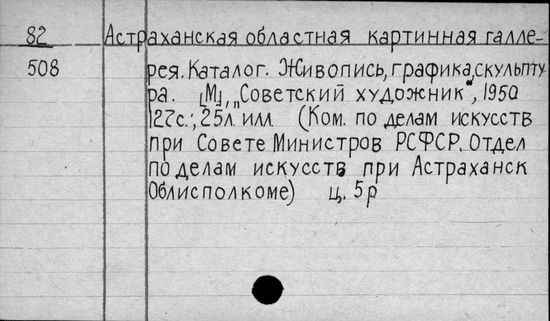 82 Астраханская областная картинная галле-
508 рея. Каталог. Живопись, графика, скульпту
ра. [М], „Советский художник", 1950
127с.; 25л. илл (Ком. по делам искусств
при Совете Министров РСФСР. Отдел
по делам искусств при Астраханск
Облисполкоме) ц. 5р